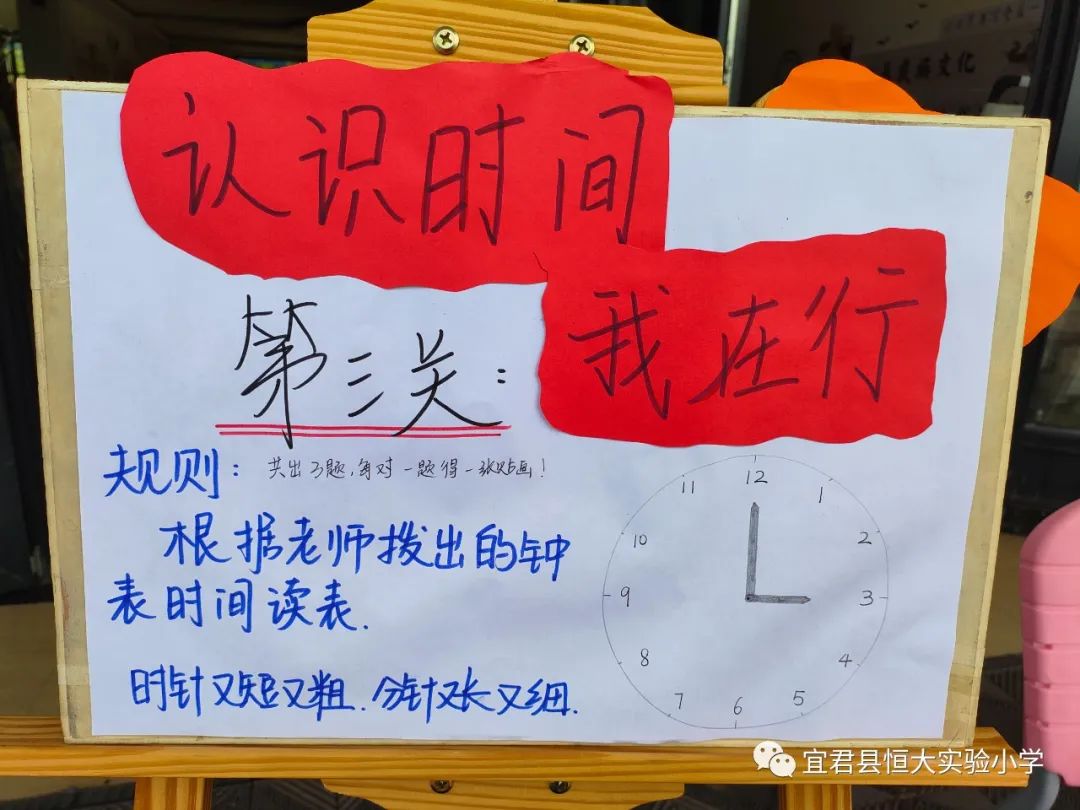 认识时间
我在行
第三关:
规则:共出3题,每对一题得一张贴画!
根据老师拨出的钟
表时间读表.
时针又短又粗.分针又长又细.
12
11 1
10 2
9 3
8 4
7 5
6
文化
宜君县恒大实验小学